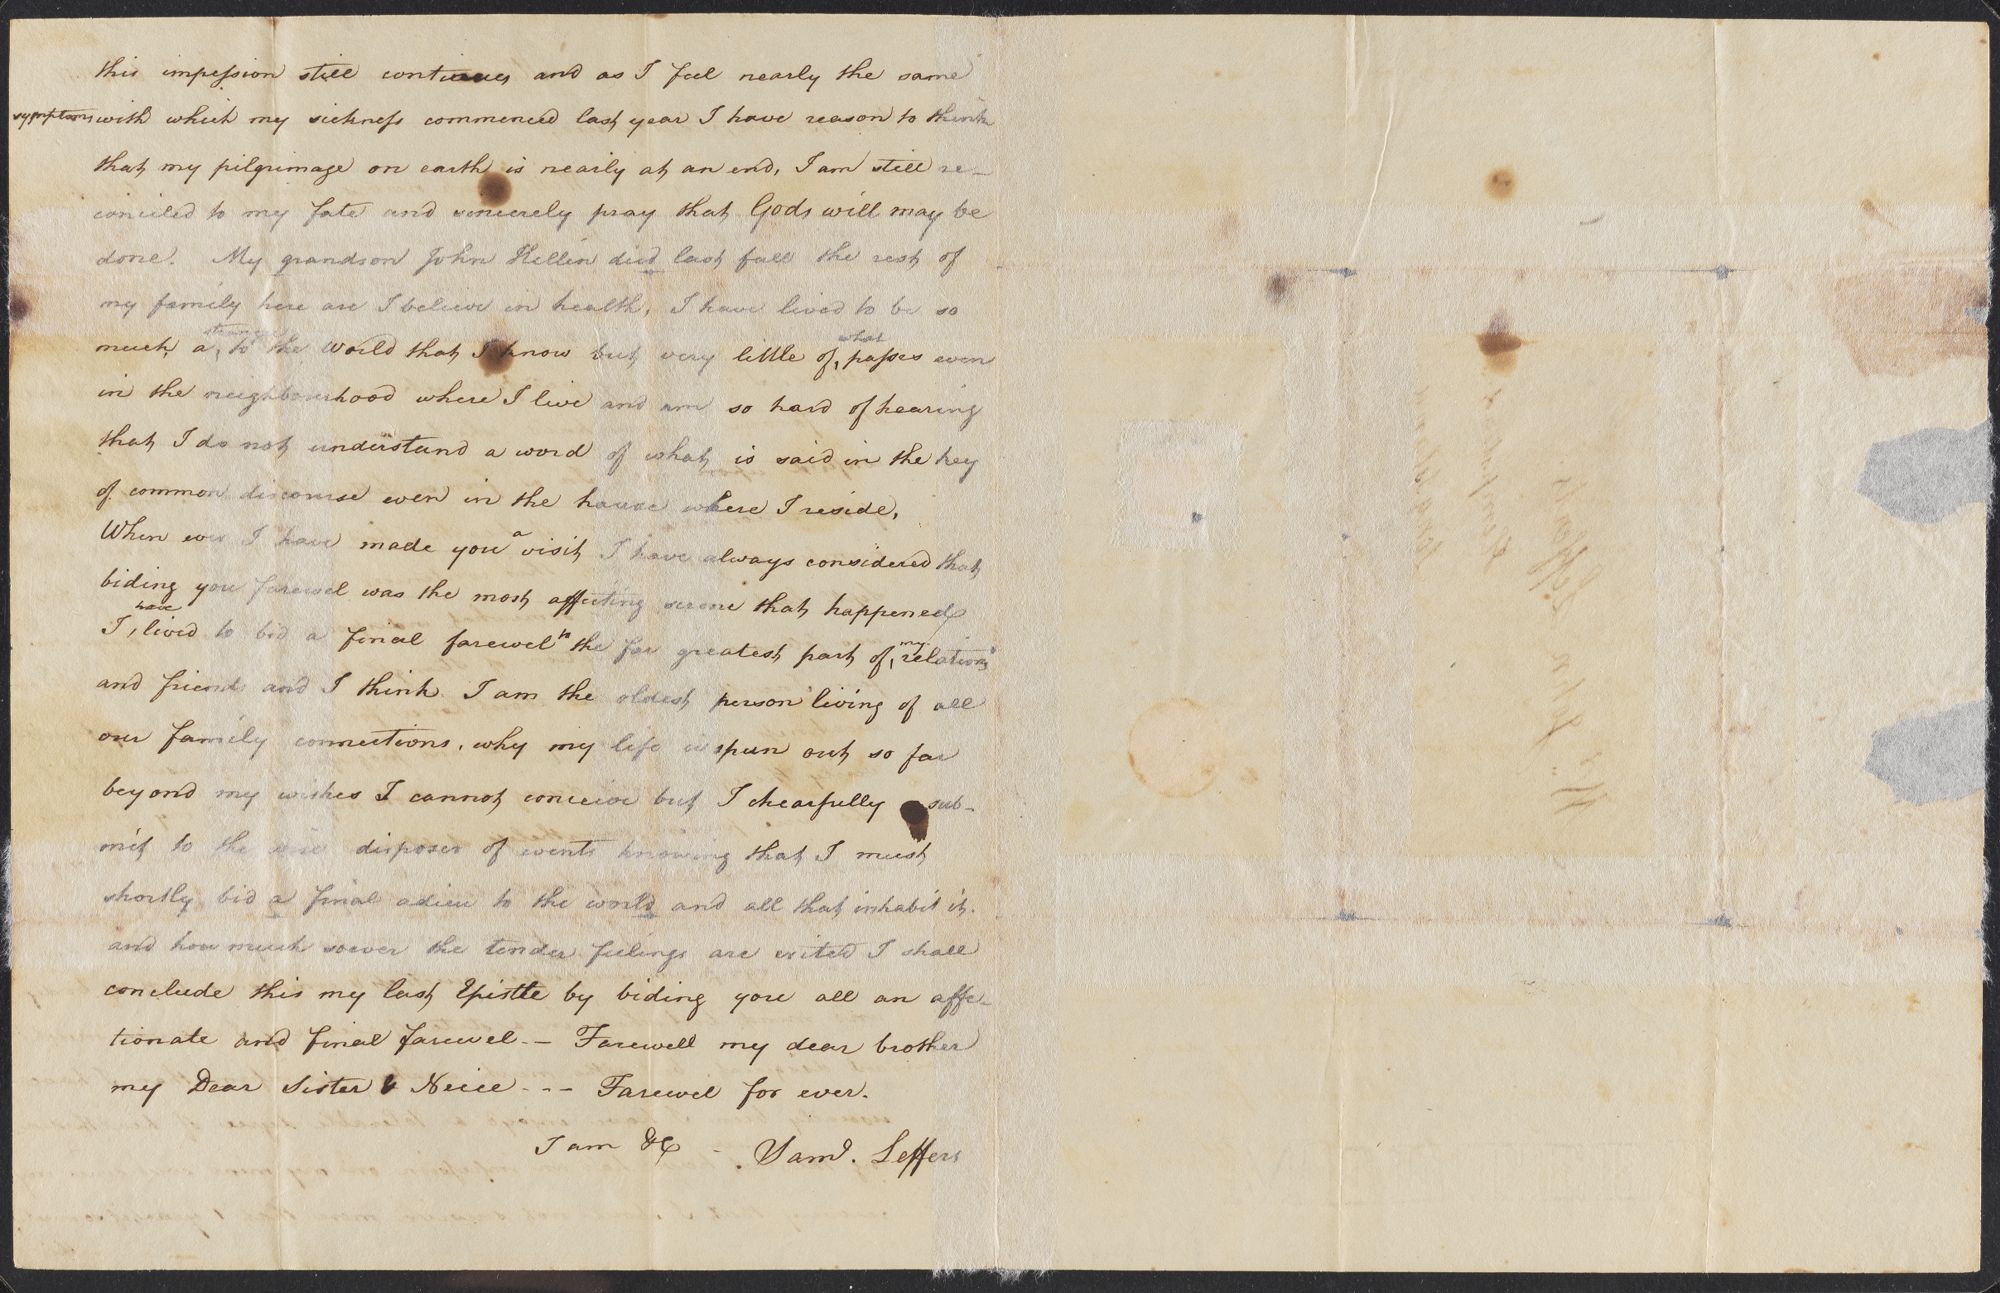 this impession still continues and as I feel nearly the same
symptoms with which my sickness commenced last year I have reason to think
that my pilgrimage on earth is nearly at an end, I am still re-
conciled to my fate and sincerely pray that Gods will may be
done. My grandson John Hellen died last fall the rest of
my family here are I believe in health, I have lived to be so
much a stranger to the world that I know but very little of what passes even
in the neighbourhood where I live and am so hard of hearing
that I do not understand a word of what is said in the key
of common discourse even in the house where I reside,
When ever I have made you a visit I have always considered that
biding you farewel was the most affecting scene that happened
I have lived to bid a final farewel to the far greatest part of my relations
and friends and I think I am the oldest person living of all
our family connections, why my life is spun out so far
beyond my wishes I cannot conceive but I chearfully sub-
mit to the wise disposer of events knowing that I must
shortly bid a final adieu to the world and all that inhabit it.
and how much soever the tender feelings are exited I shall
conclude this my last Epistle by biding you all an affec-
tionate and final farewel -- Farewell my dear brother
my Dear Sister & Neice --- Farewel for ever.
I am &c - Saml. Leffers